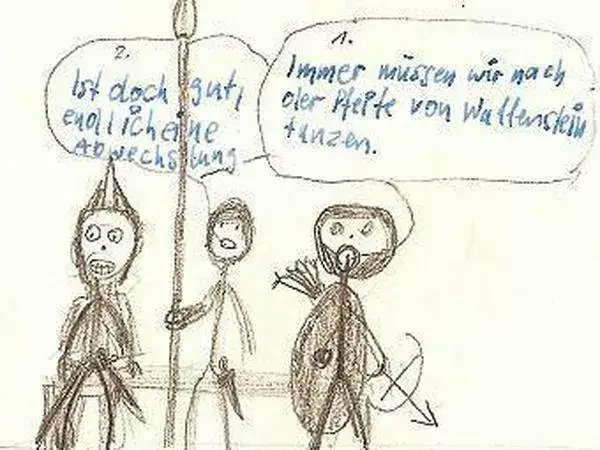 2.
Ist doch gut,
endlich eine
Abwechslung
1.
Immer müssen wir nach
der Pfeife von Wallenstein
tanzen.